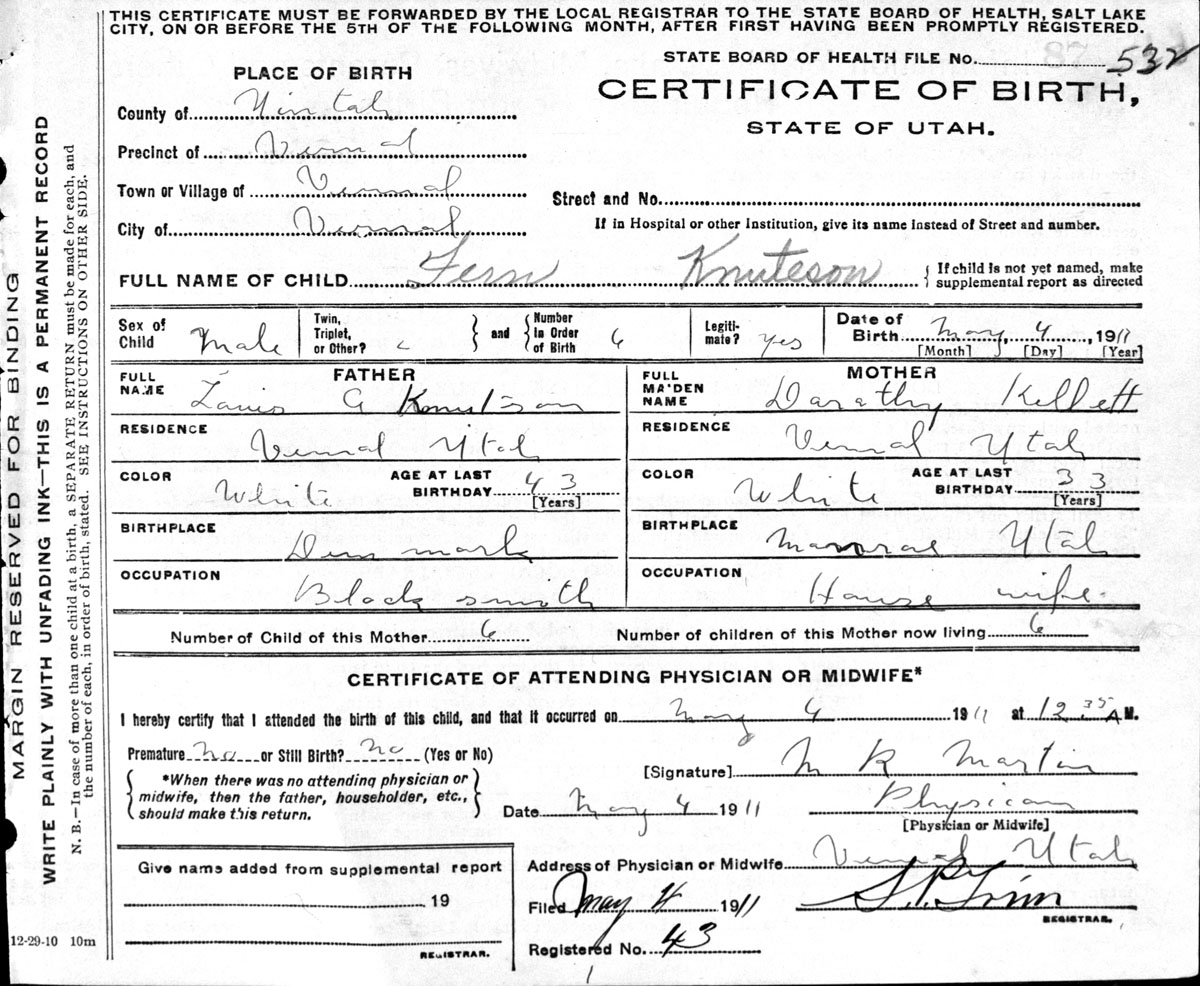 THIS CERTIFICATE MUST BE FORWARDED BY THE LOCAL REGISTRAR TO THE STATE BOARD OF HEALTH, SALT LAKE
CITY, ON OR BEFORE THE 5TH OF THE FOLLOWING MONTH, AFTER FIRST HAVING BEEN PROMPTLY REGISTERED.
STATE BOARD OF HEALTH FILE No. 532
PLACE OF BIRTH
CERTIFICATE OF BIRTH,
STATE OF UTAH.
County of Uintah
Precinct of Vernal
Town or Village of Vernal
Street and No.
City of Vernal
If in Hospital or other Institution, give its name Instead of Street and number.
FULL NAME OF CHILD Fern Knuteson { If child is not yet named, make supplemental report as directed
Sex of Child Male Twin, Triplet, or Other? and Number in Order of Birth 6 Legiti-mate? yes Date of Birth May 4, 1911
[Month] [Day] [Year]
FATHER MOTHER
FULL NAME Louis A Knutson FULL MAIDEN NAME Darathy Kellett
RESIDENCE Vernal Utah RESIDENCE Vernal Utah
COLOR White AGE AT LAST BIRTHDAY 43 [Years] COLOR White AGE AT LAST BIRTHDAY 33 [Years]
BIRTHPLACE Den mark BIRTHPLACE Utah
OCCUPATION Black smith OCCUPATION House wife.
Number of Child of this Mother 6 Number of children of this Mother now living 6
CERTIFICATE OF ATTENDING PHYSICIAN OR MIDWIFE*
I hereby certify that I attended the birth of this child, and that it occurred on May 4 1911 at 12.35 A M.
Premature No or Still Birth? No (Yes or No)
*When there was no attending physician or midwife, then the father, householder, etc., should make this return.
[Signature] M R Martin
Date May 4 1911 Physican
[Physician or Midwife]
Address of Physician or Midwife Vernal Utah
Give name added from supplemental report
19
REGISTRAR.
Filed May 4 1911
REGISTRAR.
Registered No. 43
12-29-10 10m
MARGIN RESERVED FOR BINDING
WRITE PLAINLY WITH UNFADING INK—THIS IS A PERMANENT RECORD
N. B.—In case of more than one child at a birth, a SEPARATE RETURN must be made for each, and
the number of each, in order of birth, stated. SEE INSTRUCTIONS ON OTHER SIDE.